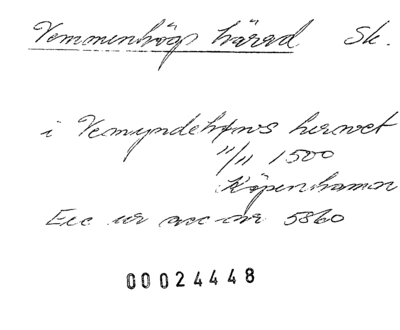 Vemmenhögs härad Sk.
i Vemyndehøws herret
11/11 1500
Köpenhamn
Exc ur acc-nr 5860
00024448